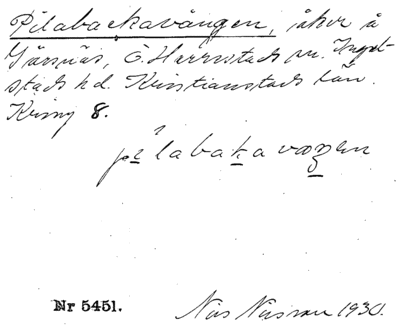 Pilabackavången, åker å
Gärsnäs, Ö. Herrestads sn. Ingel-
stads hd. Kristianstads län.
Kring 8.
pilabakavaŋen
Nr 5451.
Nils Nilsson 1930.